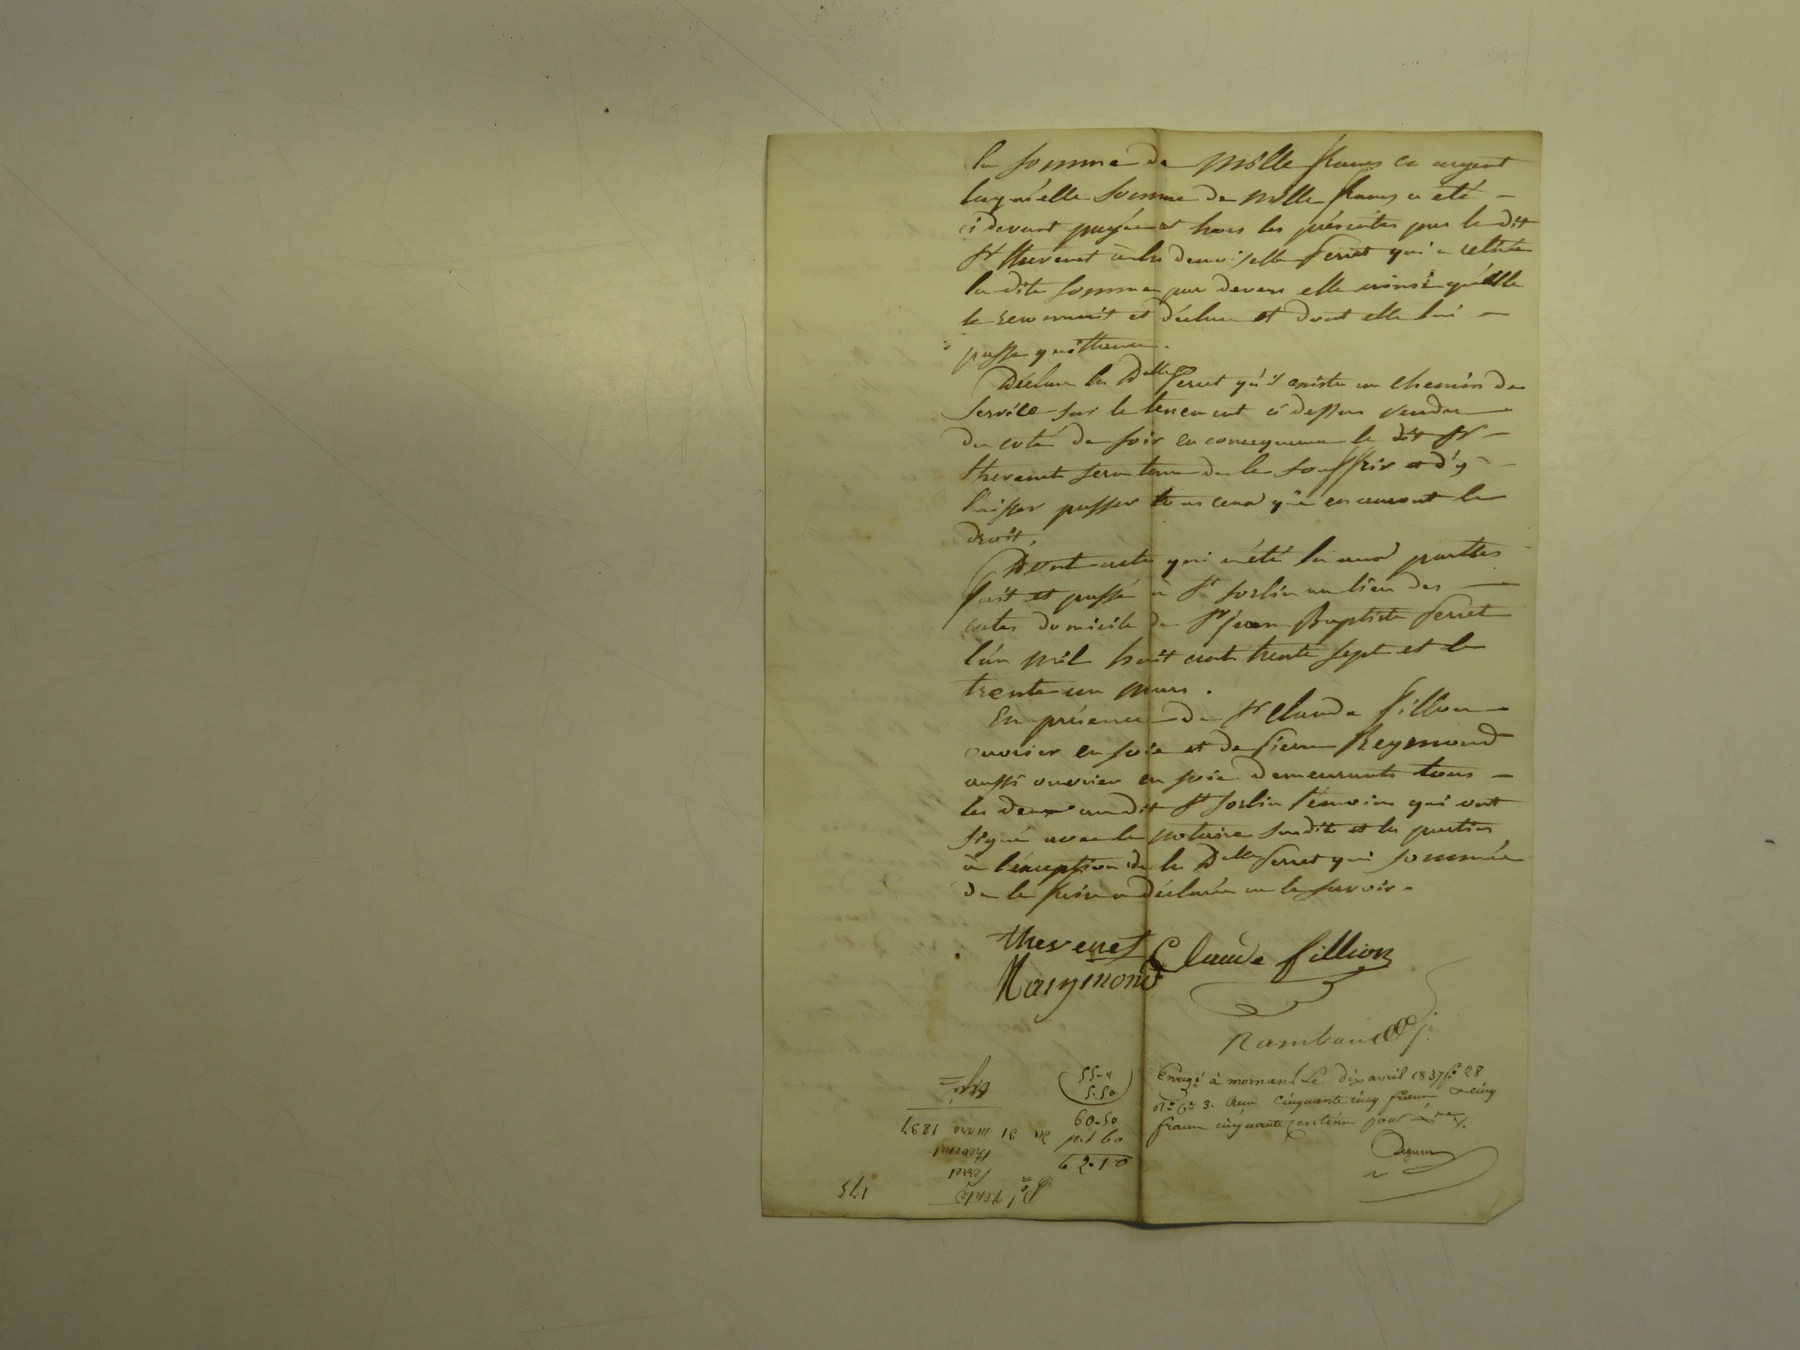 la somme de mille francs en argent
laquelle somme de mille francs a été –
ci devant payée et hors les présentes par le dit
Sr thevenet à la demoiselle ferret qui a retiré
la dite somme par devers elle ainsi qu'elle
le reconnait et déclare et dont elle lui –
passe quittance.
Déclare la Dlle ferret qu'il existe un chemin de
service sur le tenement ci dessus vendu
du coté de soir en consequence le dit Sr –
thevenet sera tenu de le souffrir et d'y –
laisser passer tous ceux qui en auront le
droit.
Dont acte qui a été lu aux parties
fait et passé à St Sorlin au lieu des
cotes domicile de Sr jean Baptiste ferret
l'an mil huit cent trente sept et le
trente un mars.
En présence de Sr Claude fillion
ouvrier en soie et de Pierre Reymond
aussi ouvrier en soie demeurants tous –
les deux au dit St Sorlin témoins qui ont
signé avec le notaire susdit et les parties
à l'éxception de la Dlle ferret qui sommée
de le faire a déclaré ne le savoir.
thevenet Claude fillion
Raymond
Rambaud je
Enregé à mornant le dix avril 1837 fo 28
Ro Ce 3. Reçu cinquante cinq francs & cinq
francs cinquante centimes pour Dme
55-"
5.50
60-50
pet 60
62-10
175
Vente
ferret
thevenet
du 31 mars 1837